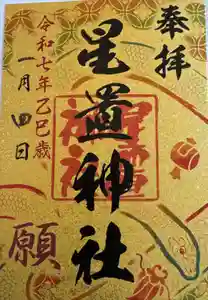 奉拝
星置神社
令和七年乙巳歳
一月四日
願